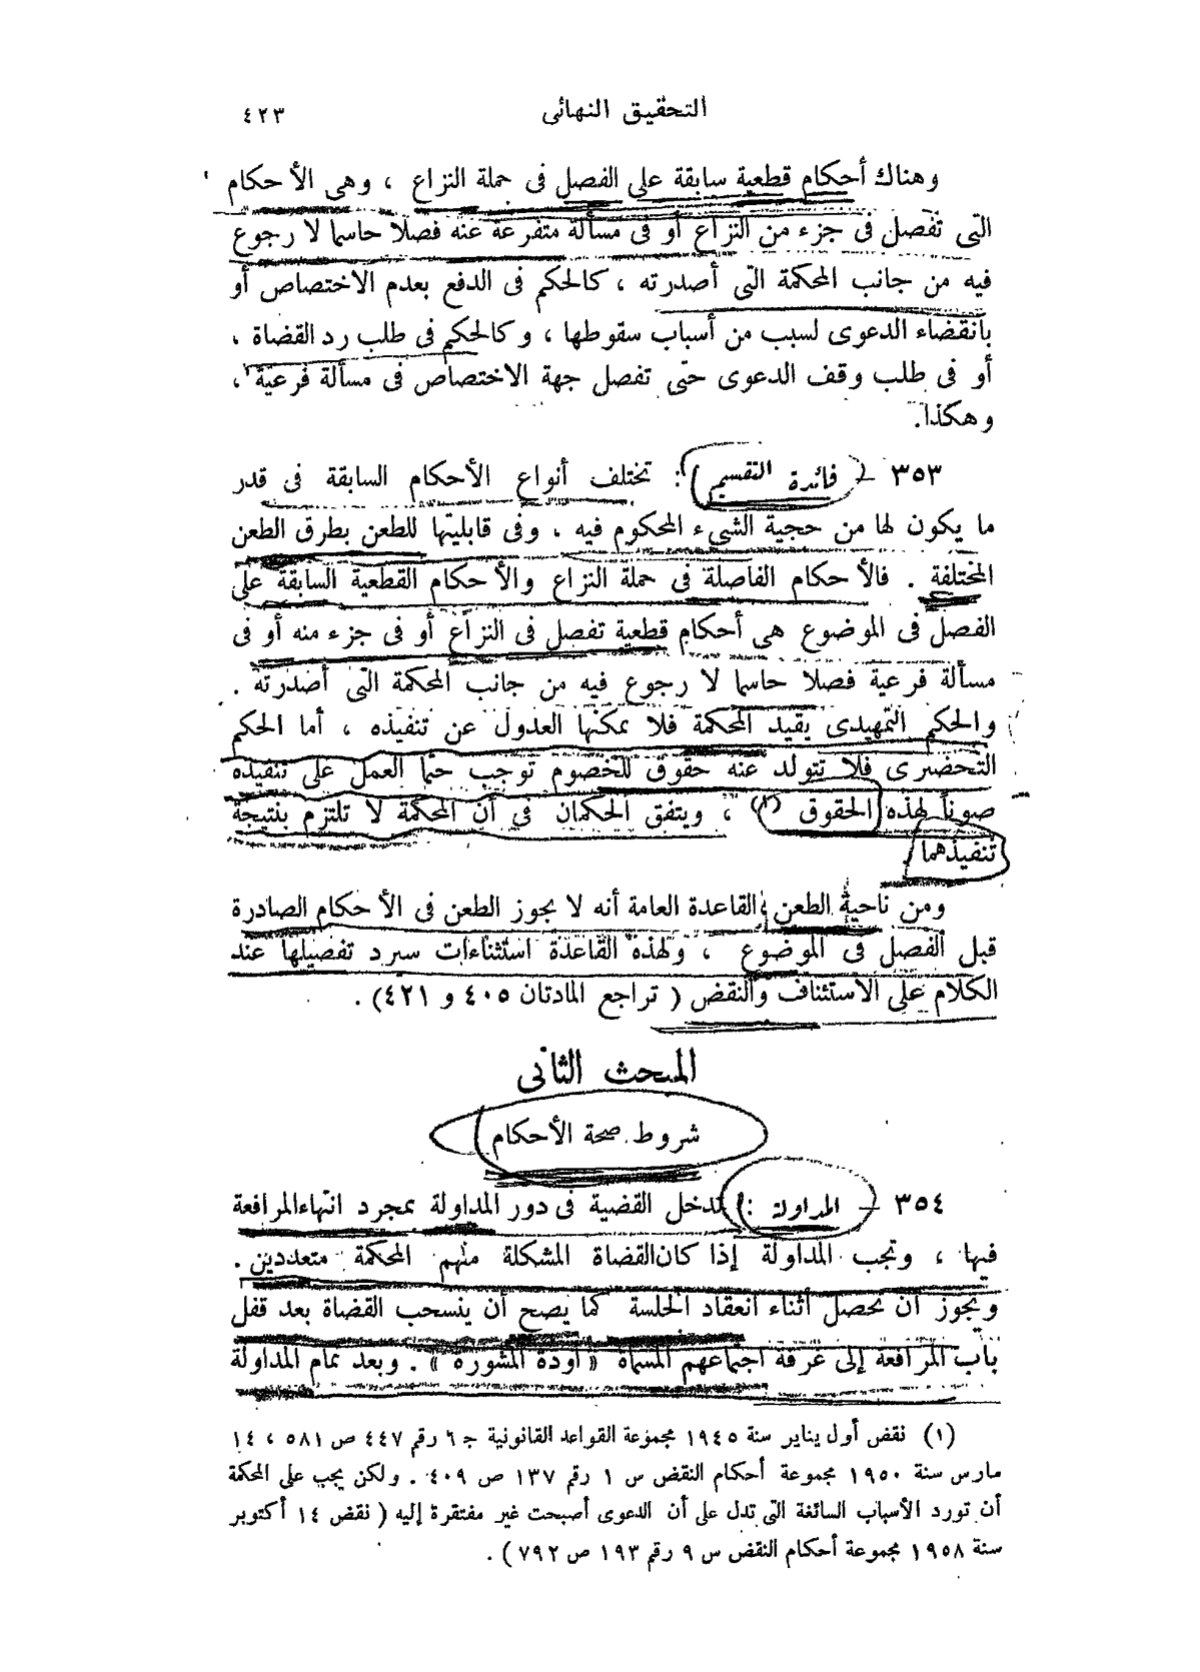 التحقيق النهائى
٤٢٣
وهناك أحكام قطعية سابقة على الفصل فى جملة النزاع ، وهى الأحكام
التى تفصل فى جزء من النزاع أو فى مسألة متفرعة عنه فصلا حاسما لا رجوع
فيه من جانب المحكمة التى أصدرته ، كالحكم فى الدفع بعدم الاختصاص أو
بانقضاء الدعوى لسبب من أسباب سقوطها ، وكالحكم فى طلب رد القضاة ،
أو فى طلب وقف الدعوى حتى تفصل جهة الاختصاص فى مسألة فرعية ،
وهكذا.
٣٥٣ – (فائدة التقسيم) : تختلف أنواع الأحكام السابقة فى قدر
ما يكون لها من حجية الشىء المحكوم فيه ، وفى قابليتها للطعن بطرق الطعن
المختلفة . فالأحكام الفاصلة فى جملة النزاع والأحكام القطعية السابقة على
الفصل فى الموضوع هى أحكام قطعية تفصل فى النزاع أو فى جزء منه أو فى
مسألة فرعية فصلا حاسما لا رجوع فيه من جانب المحكمة التى أصدرته .
والحكم التمهيدى يقيد المحكمة فلا يمكنها العدول عن تنفيذه ، أما الحكم
التحضيرى فلا تتولد عنه حقوق للخصوم توجب حتما العمل على تنفيذه
صوناً لهذه الحقوق (١) ، ويتفق الحكمان فى أن المحكمة لا تلتزم بنتيجة
تنفيذهما .
ومن ناحية الطعن القاعدة العامة أنه لا يجوز الطعن فى الأحكام الصادرة
قبل الفصل فى الموضوع ، ولهذه القاعدة استثناءات سيرد تفصيلها عند
الكلام على الاستئناف والنقض ( تراجع المادتان ٤٠٥ و ٤٢١) .
المبحث الثانى
شروط صحة الأحكام
٣٥٤ – المداولة : تدخل القضية فى دور المداولة بمجرد انتهاء المرافعة
فيها ، وتجب المداولة إذا كان القضاة المشكلة منهم المحكمة متعددين .
ويجوز أن تحصل أثناء انعقاد الجلسة كما يصح أن ينسحب القضاة بعد قفل
باب المرافعة إلى غرفة اجتماعهم المسماة « أودة المشورة » . وبعد تمام المداولة
(١) نقض أول يناير سنة ١٩٤٥ مجموعة القواعد القانونية ج ٦ رقم ٤٤٧ ص ٥٨١ ، ١٤
مارس سنة ١٩٥٠ مجموعة أحكام النقض س ١ رقم ١٣٧ ص ٤٠٩ . ولكن يجب على المحكمة
أن تورد الأسباب السائغة التى تدل على أن الدعوى أصبحت غير مفتقرة إليه ( نقض ١٤ أكتوبر
سنة ١٩٥٨ مجموعة أحكام النقض س ٩ رقم ١٩٣ ص ٧٩٢) .